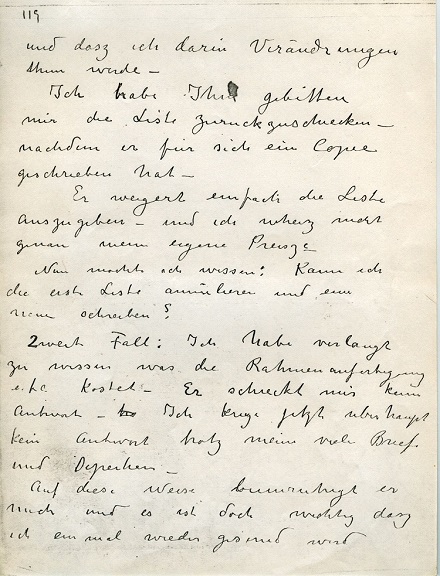 119
und dasz ich darin Verändrungen
thun werde –
Ich habe Ihn gebitten
mir die Liste zurückzuschicken –
nachdem er für sich ein Copie
geschrieben hat –
Er weigert einfach die Liste
auszugeben – und ich weisz nicht
genau meine eigene Preisze
Nun möchte ich wissen: Kann ich
die erste Liste annulieren und eine
neue schreiben?
Zweite Fall: Ich habe verlangt
zu wissen was die Rahmenanfertigung
etc kostet – Er schickt mir kein
Antwort – Ich kriege jetzt überhaupt
kein Antwort trotz meine viele Briefe
und Depechen –
Auf diese Weise beunruhigt er
mich und es ist doch wichtig dasz
ich einmal wieder gesund werd